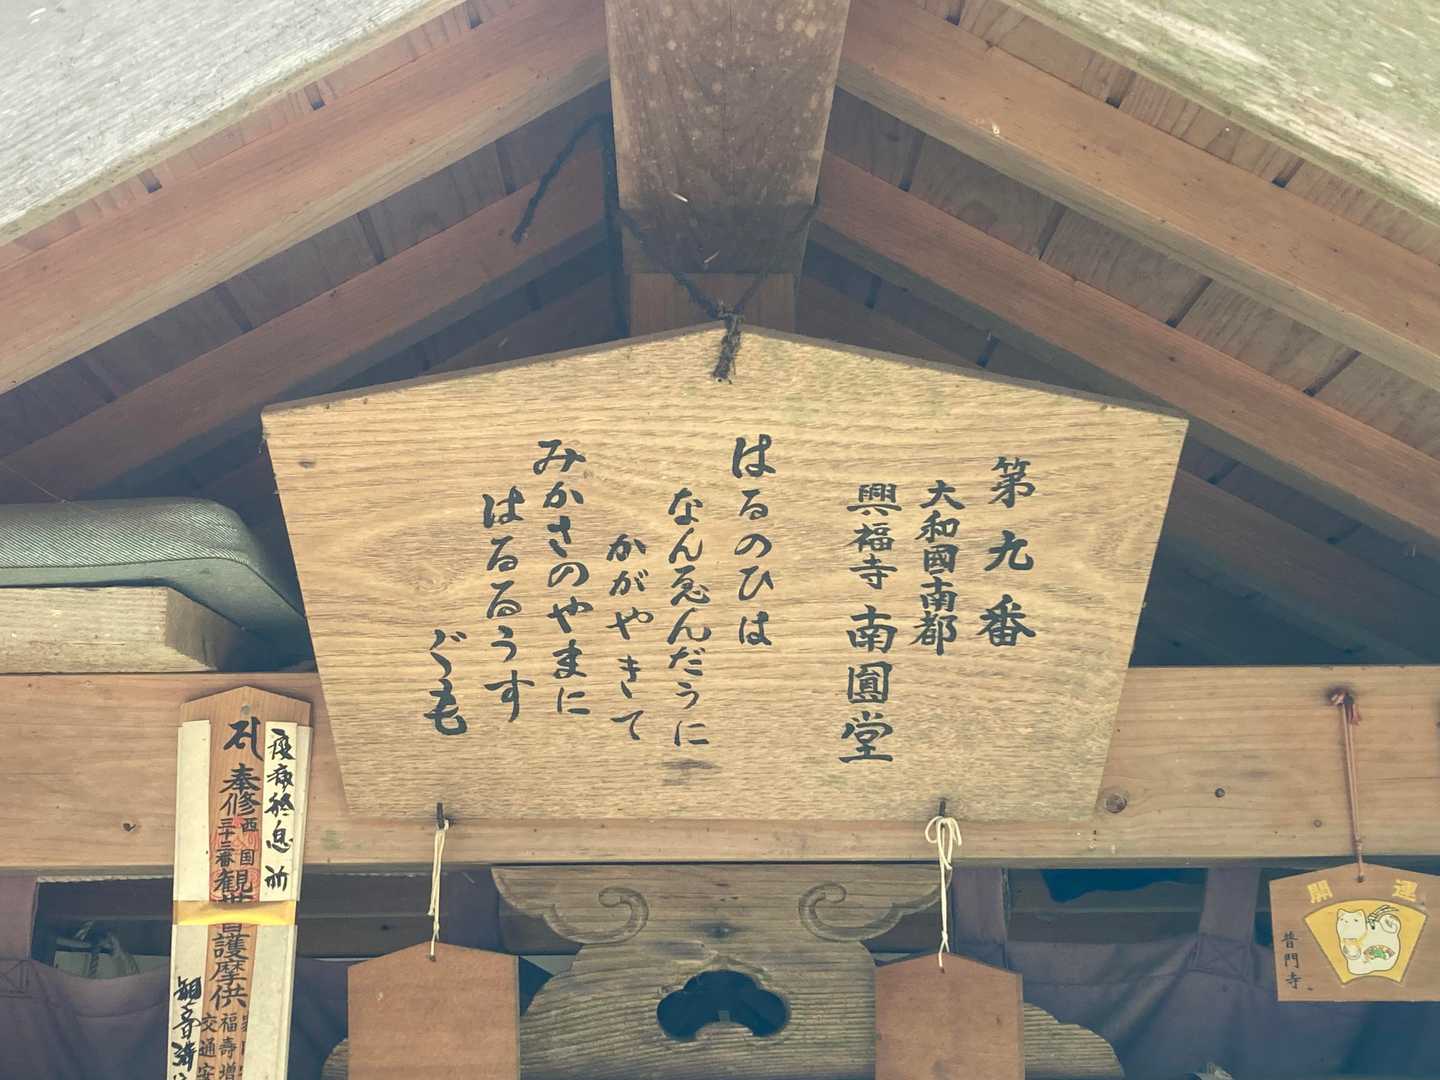 第九番
大和國南都
興福寺 南圓堂
はるのひは
なんゑんだうに
かがやきて
みかさのやまに
はるるうす
ぐも
奉修
西国
三十三番
護摩供
福壽増
交通安
開運
普門寺